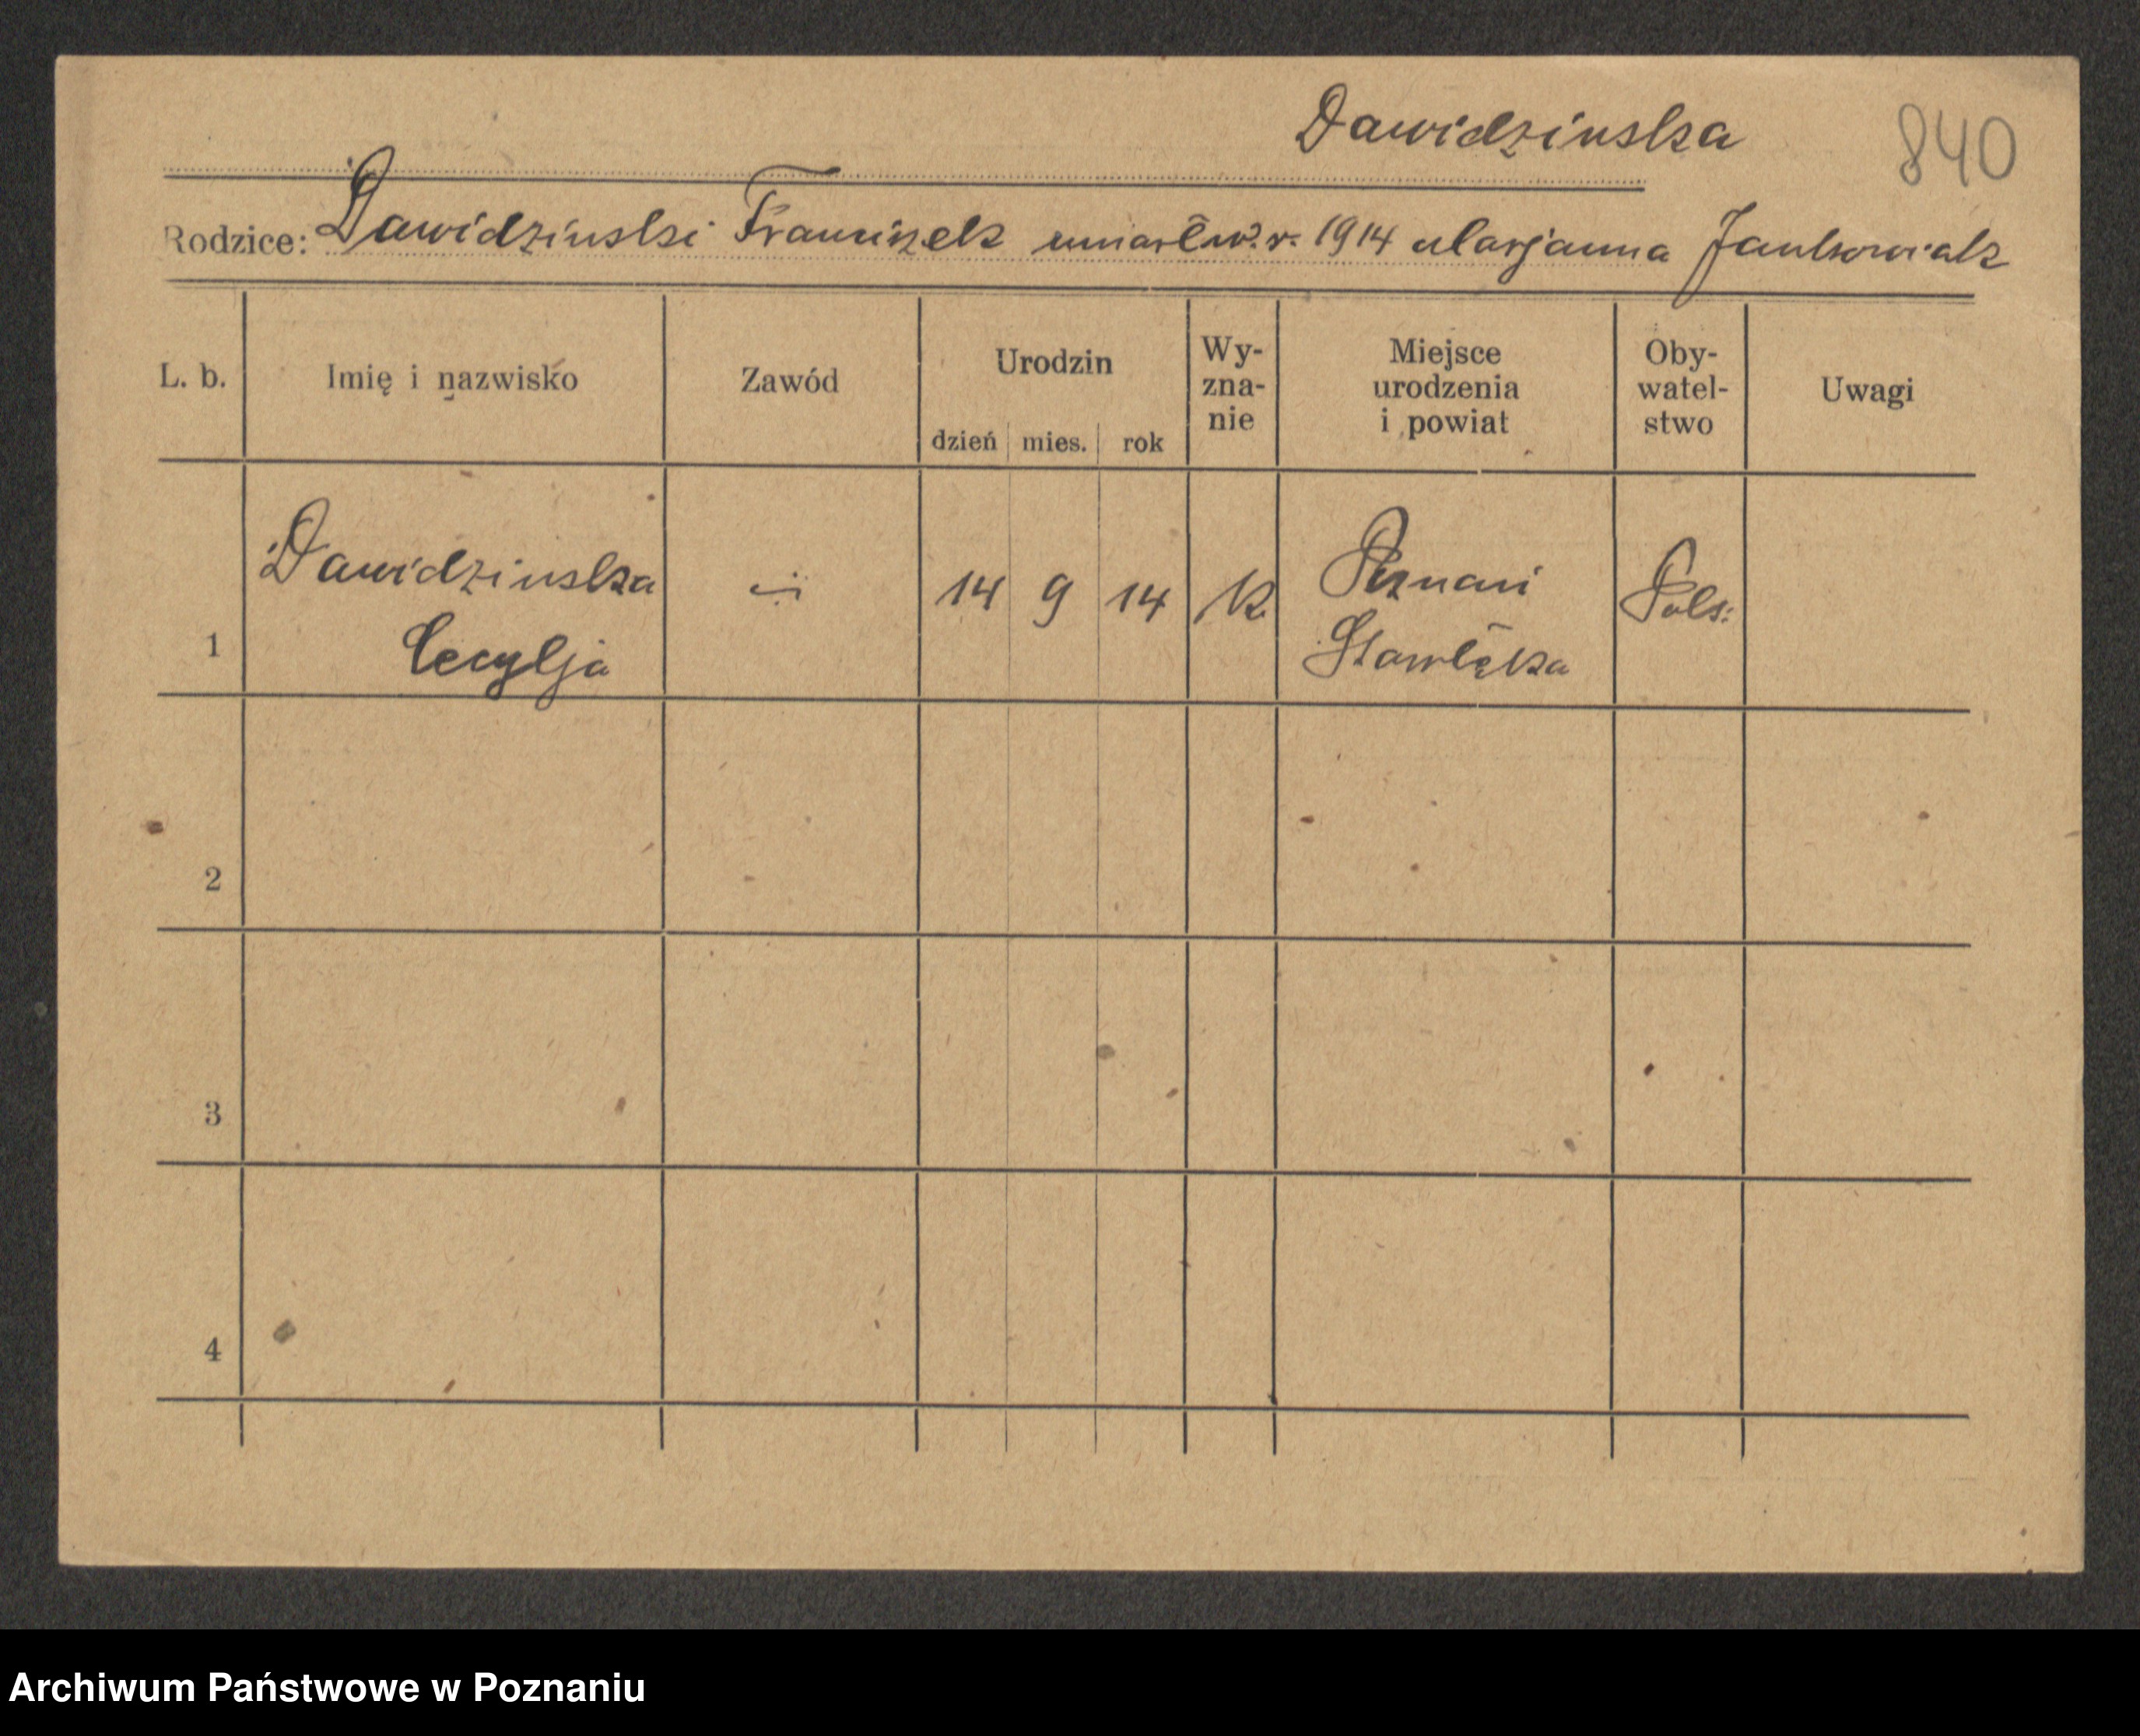 Dawidzinska 840
Rodzice: Dawidzinski Franciszek umarł w. r. 1914 Marjanna Jankowiak
L. b. Imię i nazwisko Zawód Urodzin Wy-zna-nie Miejsce urodzenia i powiat Oby-watel-stwo Uwagi
dzień mies. rok
Dawidzinska
1 -:- 14 9 14 K Poznań Pols:
Cecylja
2
3
4
Archiwum Państwowe w Poznaniu